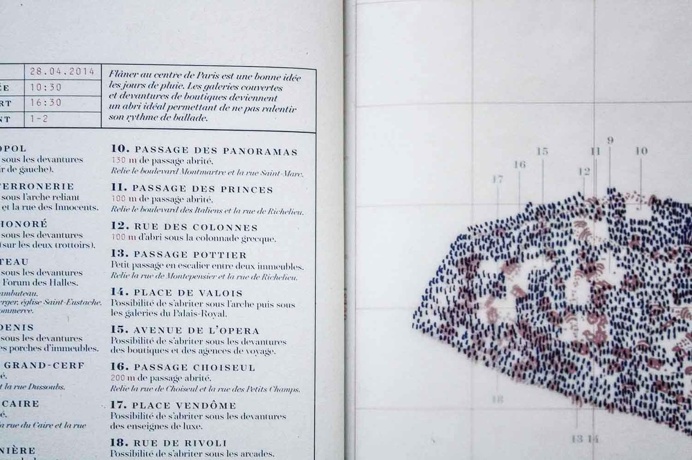 28.04.2014
10:30
16:30
1-2
Flâner au centre de Paris est une bonne idée
les jours de pluie. Les galeries couvertes
et devantures de boutiques deviennent
un abri idéal permettant de ne pas ralentir
son rythme de ballade.
OPOL
sous les devantures
ir de gauche).
FERRONERIE
sous l'arche reliant
et la rue des Innocents.
HONORÉ
sous les devantures
(sur les deux trottoirs).
TEAU
sous les devantures
Forum des Halles.
ambuteau.
erger, église Saint-Eustache.
ommerce.
DENIS
sous les devantures
es porches d'immeubles.
GRAND-CERF
é.
t la rue Dussoubs.
CAIRE
é.
a rue du Caire et la rue
NIÈRE
10. PASSAGE DES PANORAMAS
130 m de passage abrité.
Relie le boulevard Montmartre et la rue Saint-Marc.
11. PASSAGE DES PRINCES
100 m de passage abrité.
Relie le boulevard des Italiens et la rue de Richelieu.
12. RUE DES COLONNES
100 m d'abri sous la colonnade grecque.
13. PASSAGE POTTIER
Petit passage en escalier entre deux immeubles.
Relie la rue de Montepensier et la rue de Richelieu.
14. PLACE DE VALOIS
Possibilité de s'abriter sous l'arche puis sous
les galeries du Palais-Royal.
15. AVENUE DE L'OPERA
Possibilité de s'abriter sous les devantures
des boutiques et des agences de voyage.
16. PASSAGE CHOISEUL
200 m de passage abrité.
Relie la rue de Choiseul et la rue des Petits Champs.
17. PLACE VENDÔME
Possibilité de s'abriter sous les devantures
des enseignes de luxe.
18. RUE DE RIVOLI
Possibilité de s'abriter sous les arcades.
9
17 16 15 12 11 10
18
13 14